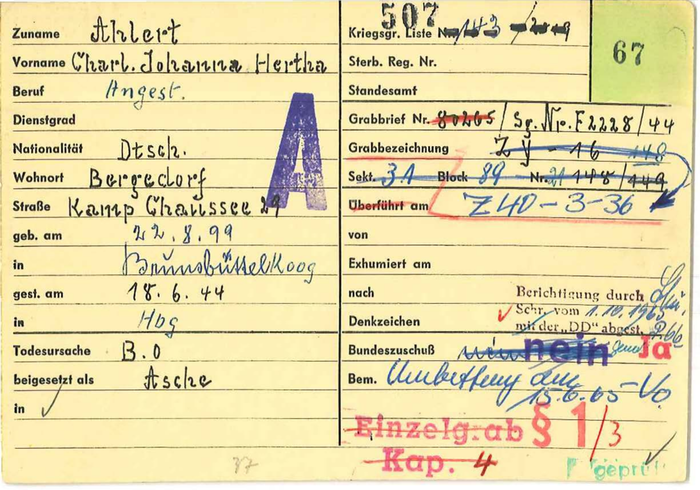 507
67
Zuname Ahlert
Vorname Charl. Johanna Hertha
Beruf Angest.
Dienstgrad
Nationalität Dtsch.
Wohnort Bergedorf
Straße Kamp Chaussee 29
geb. am 22.8.99
in Brunsbüttelkoog
gest. am 18.6.44
in Hbg
Todesursache B.O
beigesetzt als Asche
in
A
Kriegsgr. Liste
Sterb. Reg. Nr.
Standesamt
Grabbrief Nr. 80265 / Sg. Np. F2228/44
Grabbezeichnung Zy - 16 148
Sekt. 31 Block 89 Nr. 21 148/149
Überführt am Z40-3-36
von
Exhumiert am
nach Berichtigung durch
Schr. vom 1.10.1965
Denkzeichen mit der „DD“ abgest.
Bundeszuschuß nein Ja
Bem. Umbettung am
15.6.65 - Vo.
Einzelgrab § 1/3
Kap. 4
geprüft